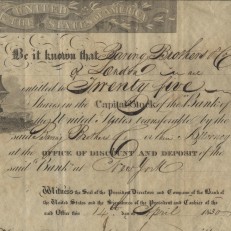 UNITED
THE STATES AMERIC
Be it known that Baring Brothers & C
of London
entitled to Twenty five
Shares in the Capital Stock of the Bank of
the United States transferable by the
said Baring Brothers or their Attorney
at the OFFICE OF DISCOUNT AND DEPOSIT of the
said Bank at New York
Witness the Seal of the President Directors and Company of the Bank of
the United States and the Signatures of the President and Cashier of the
said Office this 14 day April